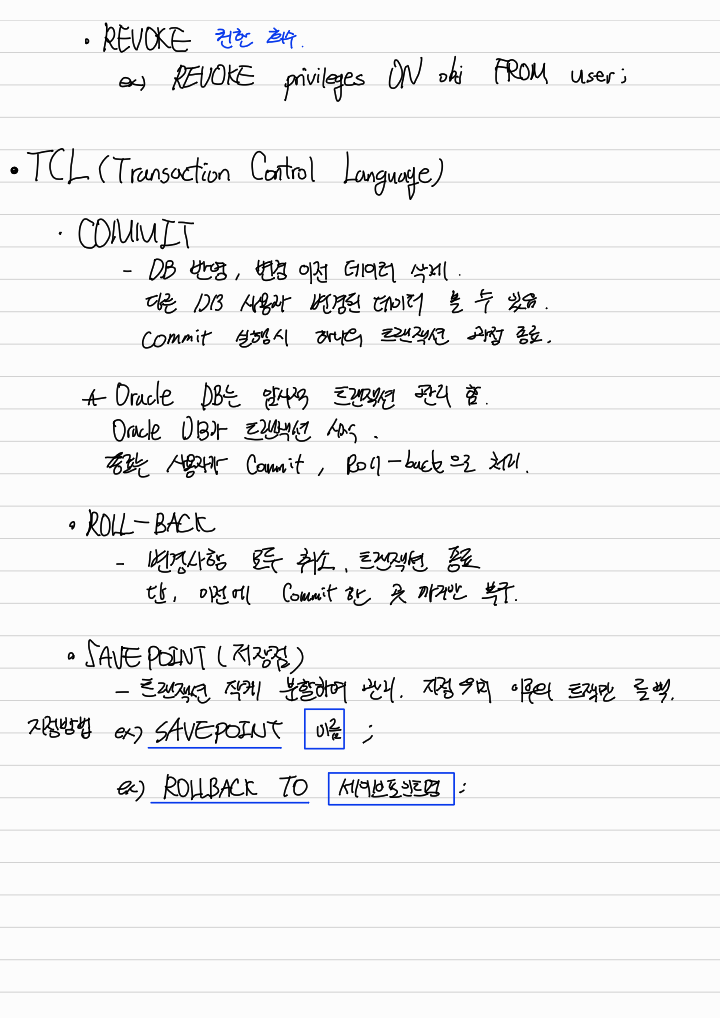 • REVOKE 권한 회수.
ex) REVOKE privileges ON obj FROM user;
• TCL (Transaction Control Language)
· COMMIT
- DB 반영, 변경 이전 데이터 삭제.
다른 DB 사용자 변경된 데이터 볼 수 있음.
Commit 실행시 하나의 트랜잭션 과정 종료.
* Oracle DB는 암시적 트랜잭션 관리 함.
Oracle DB가 트랜잭션 시작.
종료는 사용자가 Commit, Roll-back으로 처리.
• ROLL-BACK
- 변경사항 모두 취소, 트랜잭션 종료
단, 이전에 Commit 한 곳 까지만 복구.
• SAVE POINT (저장점)
- 트랜잭션 작게 분할하여 관리. 지점 이후의 트잭만 롤백.
지정방법 ex) SAVEPOINT 이름 ;
ex) ROLLBACK TO 세이브포인트명 ;